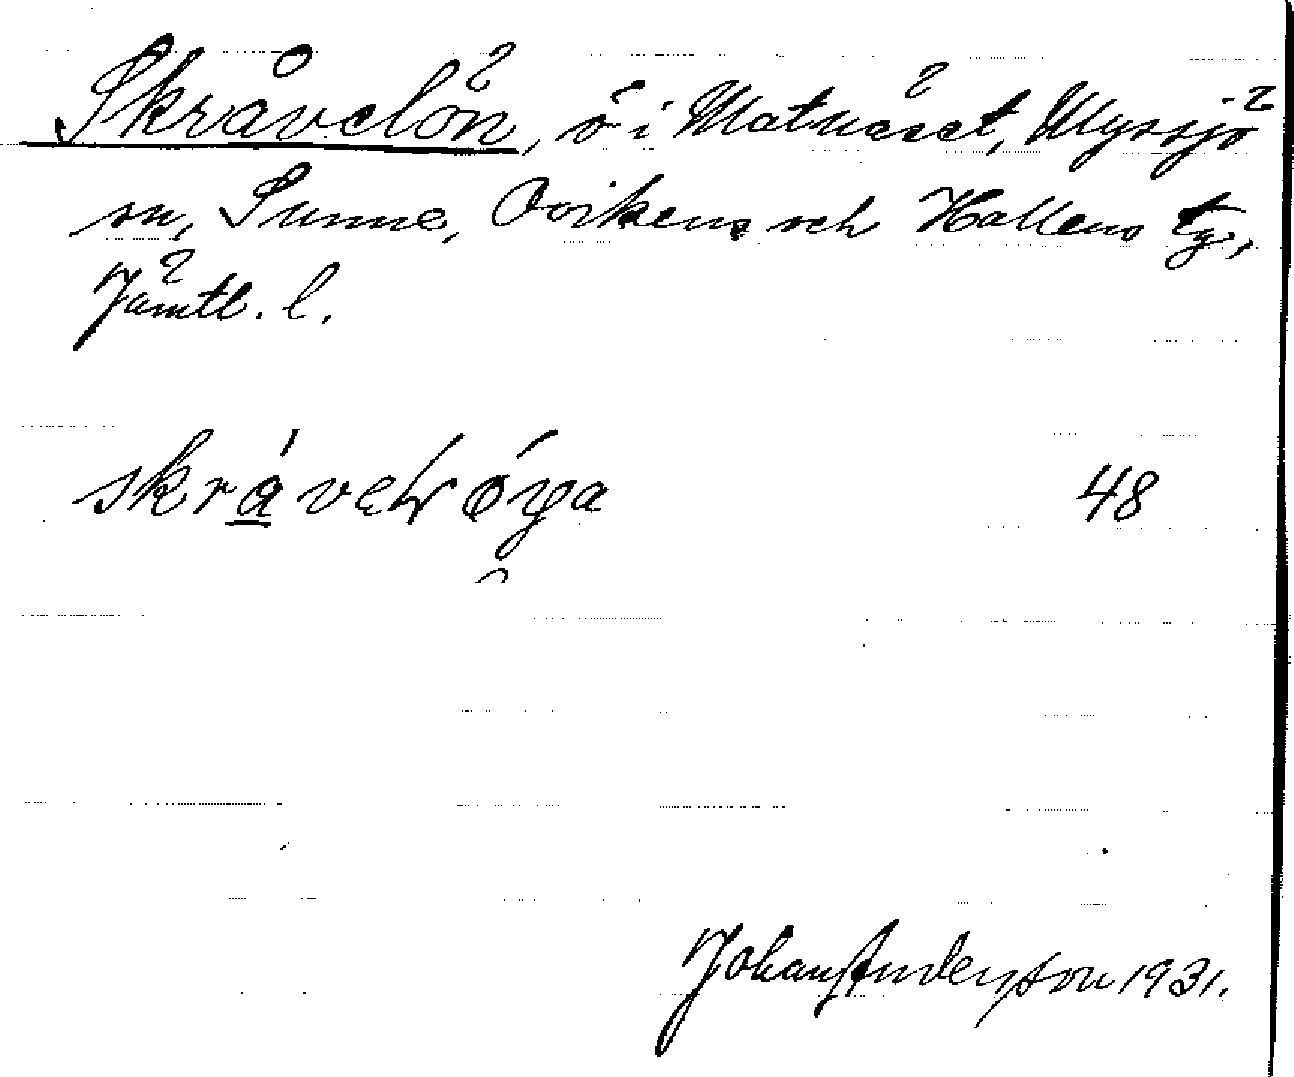 Skråvelön, ö i Matnäset, Myssjö
sn, Sunne, Ovikens och Hallens tg,
Jämtl. l.
skrávelöya 48
Johan Anderson 1931.